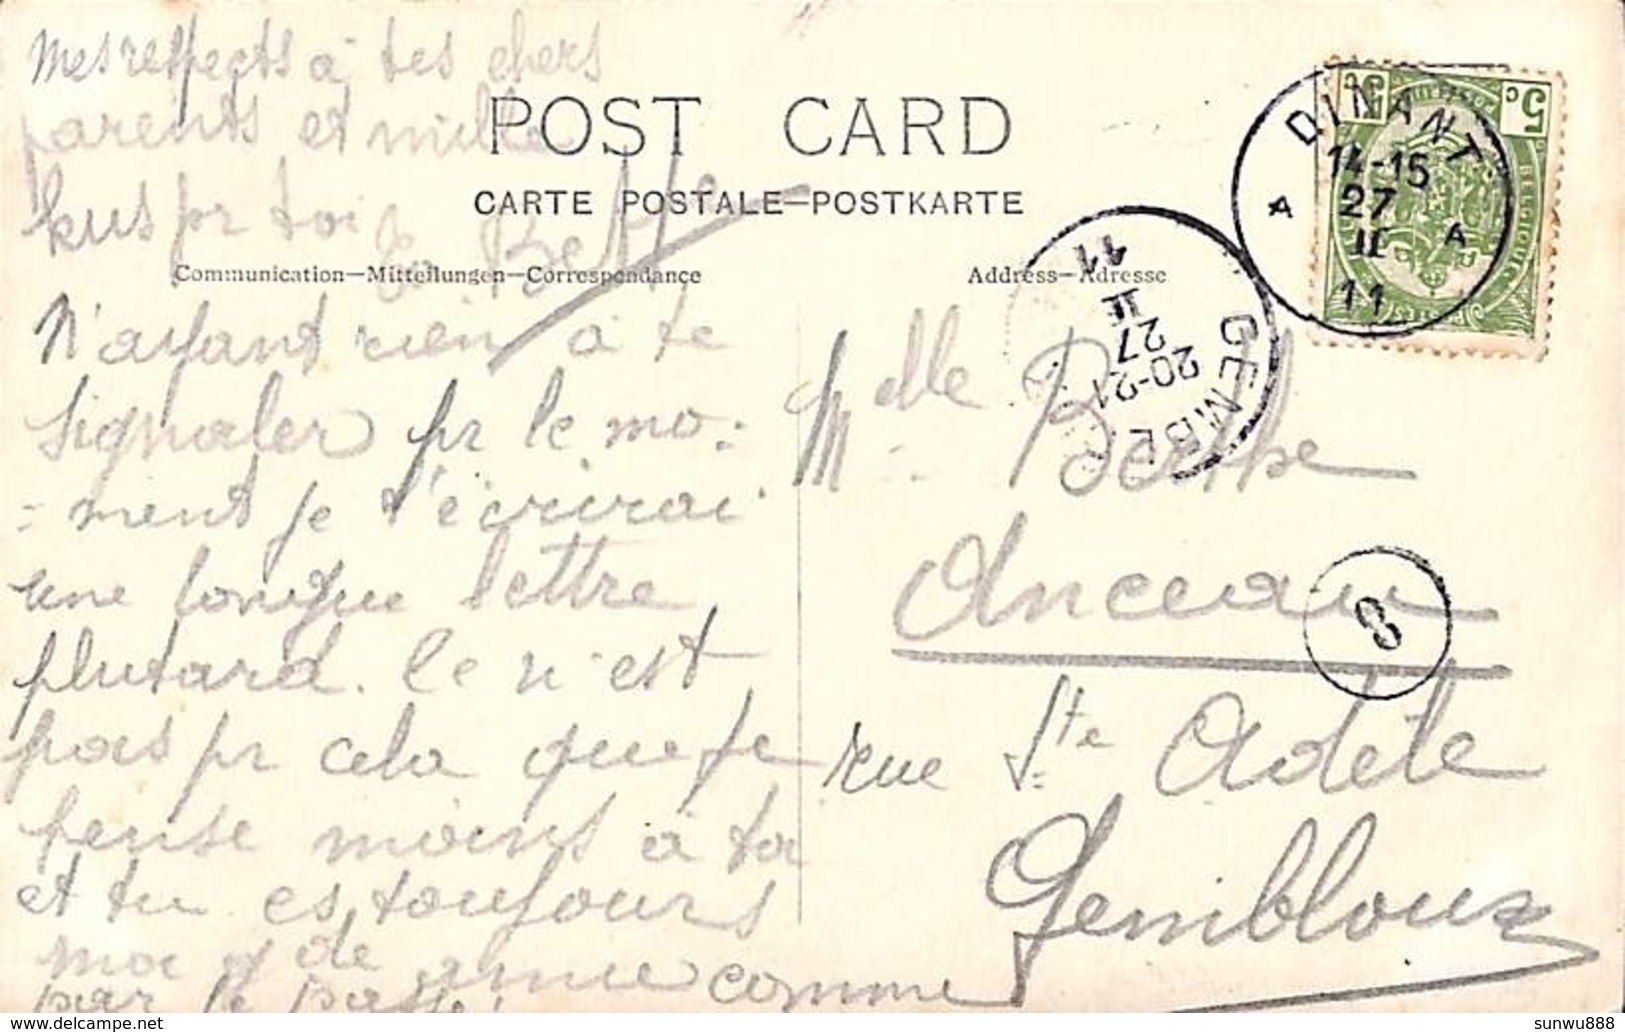 Mes respects à tes chers
parents et mille
POST CARD
kus pr toi
CARTE POSTALE—POSTKARTE
Communication—Mitteilungen—Correspondance
Address—Adresse
N'ayant rien à te
signaler pr le mo=
=ment je t'écrirai
une longue lettre
plutard. Ce n'est
pas pr cela que je
pense moins à toi
et tu es toujours
ma gde amie comme
par le passé!
DINANT
14-15
27
II
11
A A
5c 5c
BELGIQUE
POSTES
GEMBL
20-21
27
II
11
Melle Berthe
Anceau
8
rue Ste Adèle
Gembloux
sunwu888